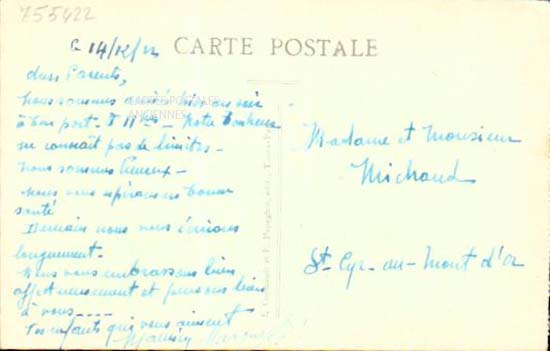 755422
CARTE POSTALE
le 14/12/22
Chers Parents,
CARTES POSTALES
ANCIENNES
Nous sommes arrivés hier au soir
à bon port - Notre bonheur
ne connaît pas de limites -
Nous sommes heureux -
Nous vous espérons en bonne
santé
Demain nous vous écrirons
longuement -
Nous vous embrassons bien
affectueusement et pensons bien
à vous ----
Vos enfants qui vous aiment
Madame et Monsieur
Michaud
St-Cyr-au-Mont d'Or